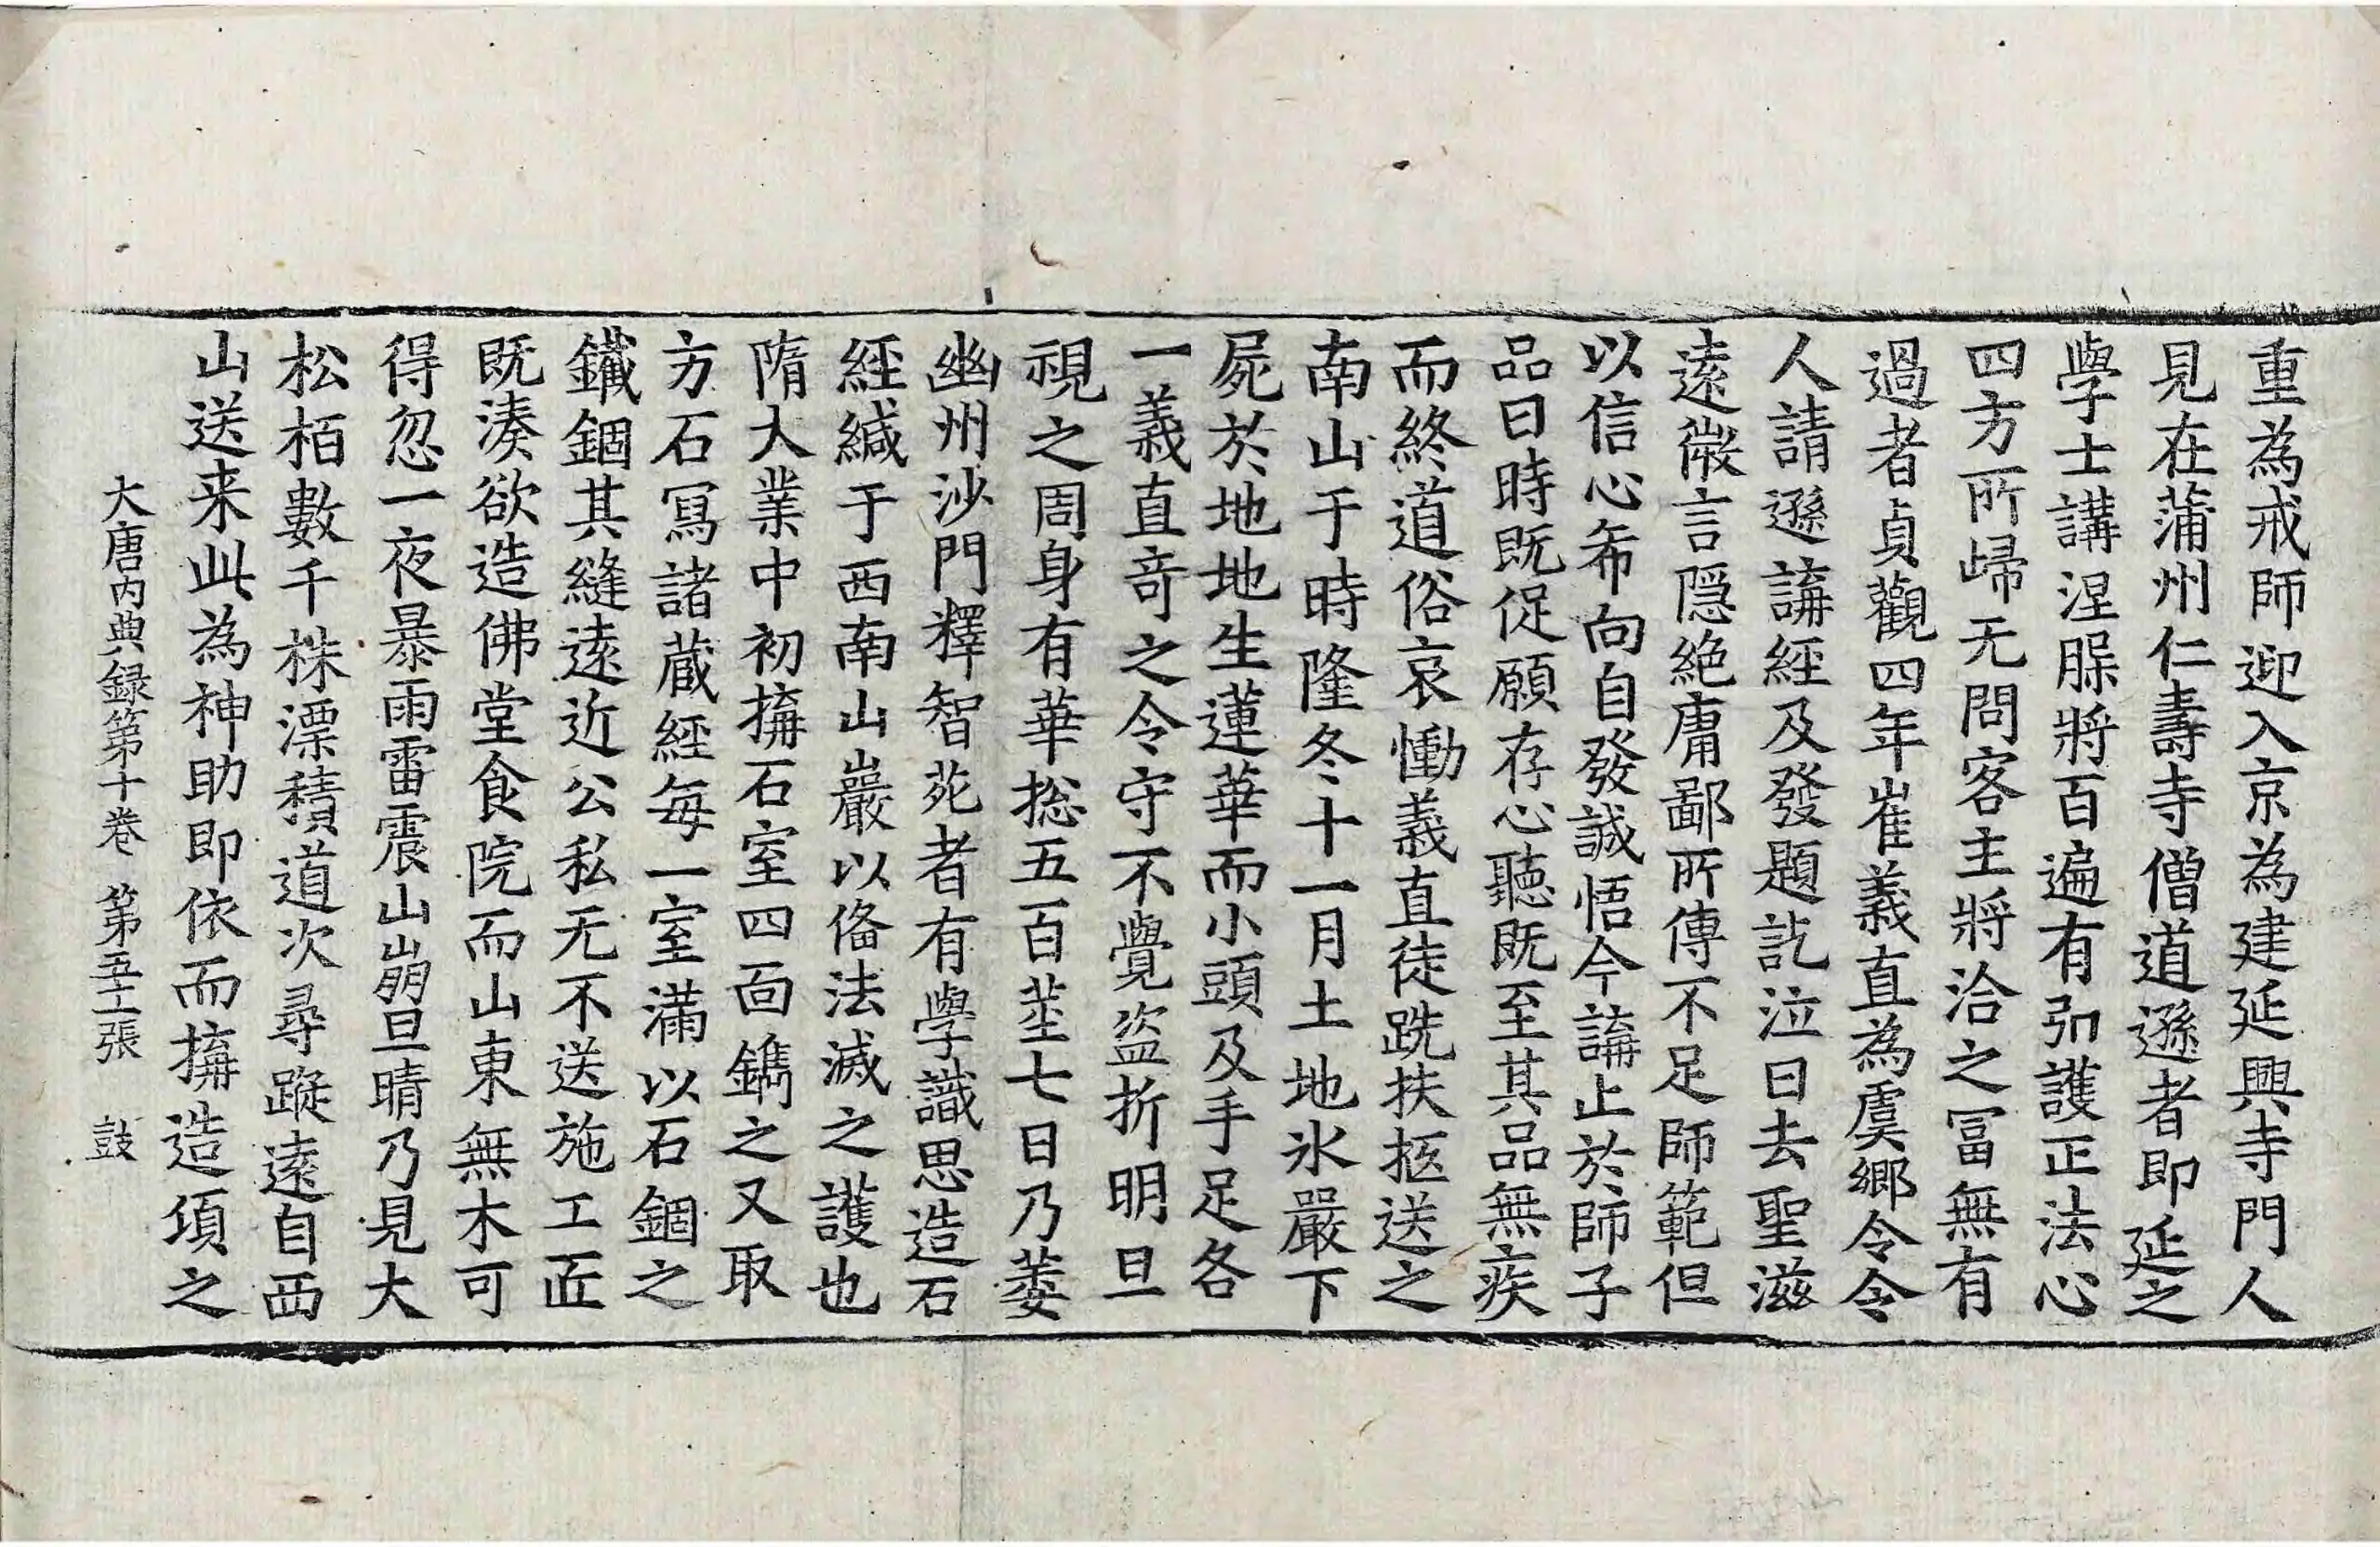 重為戒師迎入京為建延興寺門人
見在蒲州仁壽寺僧道遜者即延之
學士講涅槃將百遍有弘護正法心
四方所歸无問客主將洽之冨無有
過者貞觀四年崔義直為虞鄉令令
人請遜講經及發題訖泣曰去聖滋
遠微言隱絶庸鄙所傳不足師範但
以信心希向自發誠悟今講止於師子
品日時既促願存心聽既至其品無疾
而終道俗哀慟義直徒跣扶抠送之
南山于時隆冬十一月土地氷嚴下
屍於地地生蓮華而小頭及手足各
一義直奇之令守不覺盜折明旦
視之周身有華捴五百莖七日乃萎
幽州沙門釋智苑者有學識思造石
經緘于西南山巖以俻法滅之護也
隋大業中初揃石室四面鐫之又取
方石冩諸蔵經每一室滿以石錮之
鐵錮其縫遠近公私无不送施工匠
既湊欲造佛堂食院而山東無木可
得忽一夜暴雨雷震山崩旦晴乃見大
松栢數千株漂積道次尋蹤遠自西
山送来此為神助即依而揃造湏之
大唐内典録第十巻 第五十張 鼓